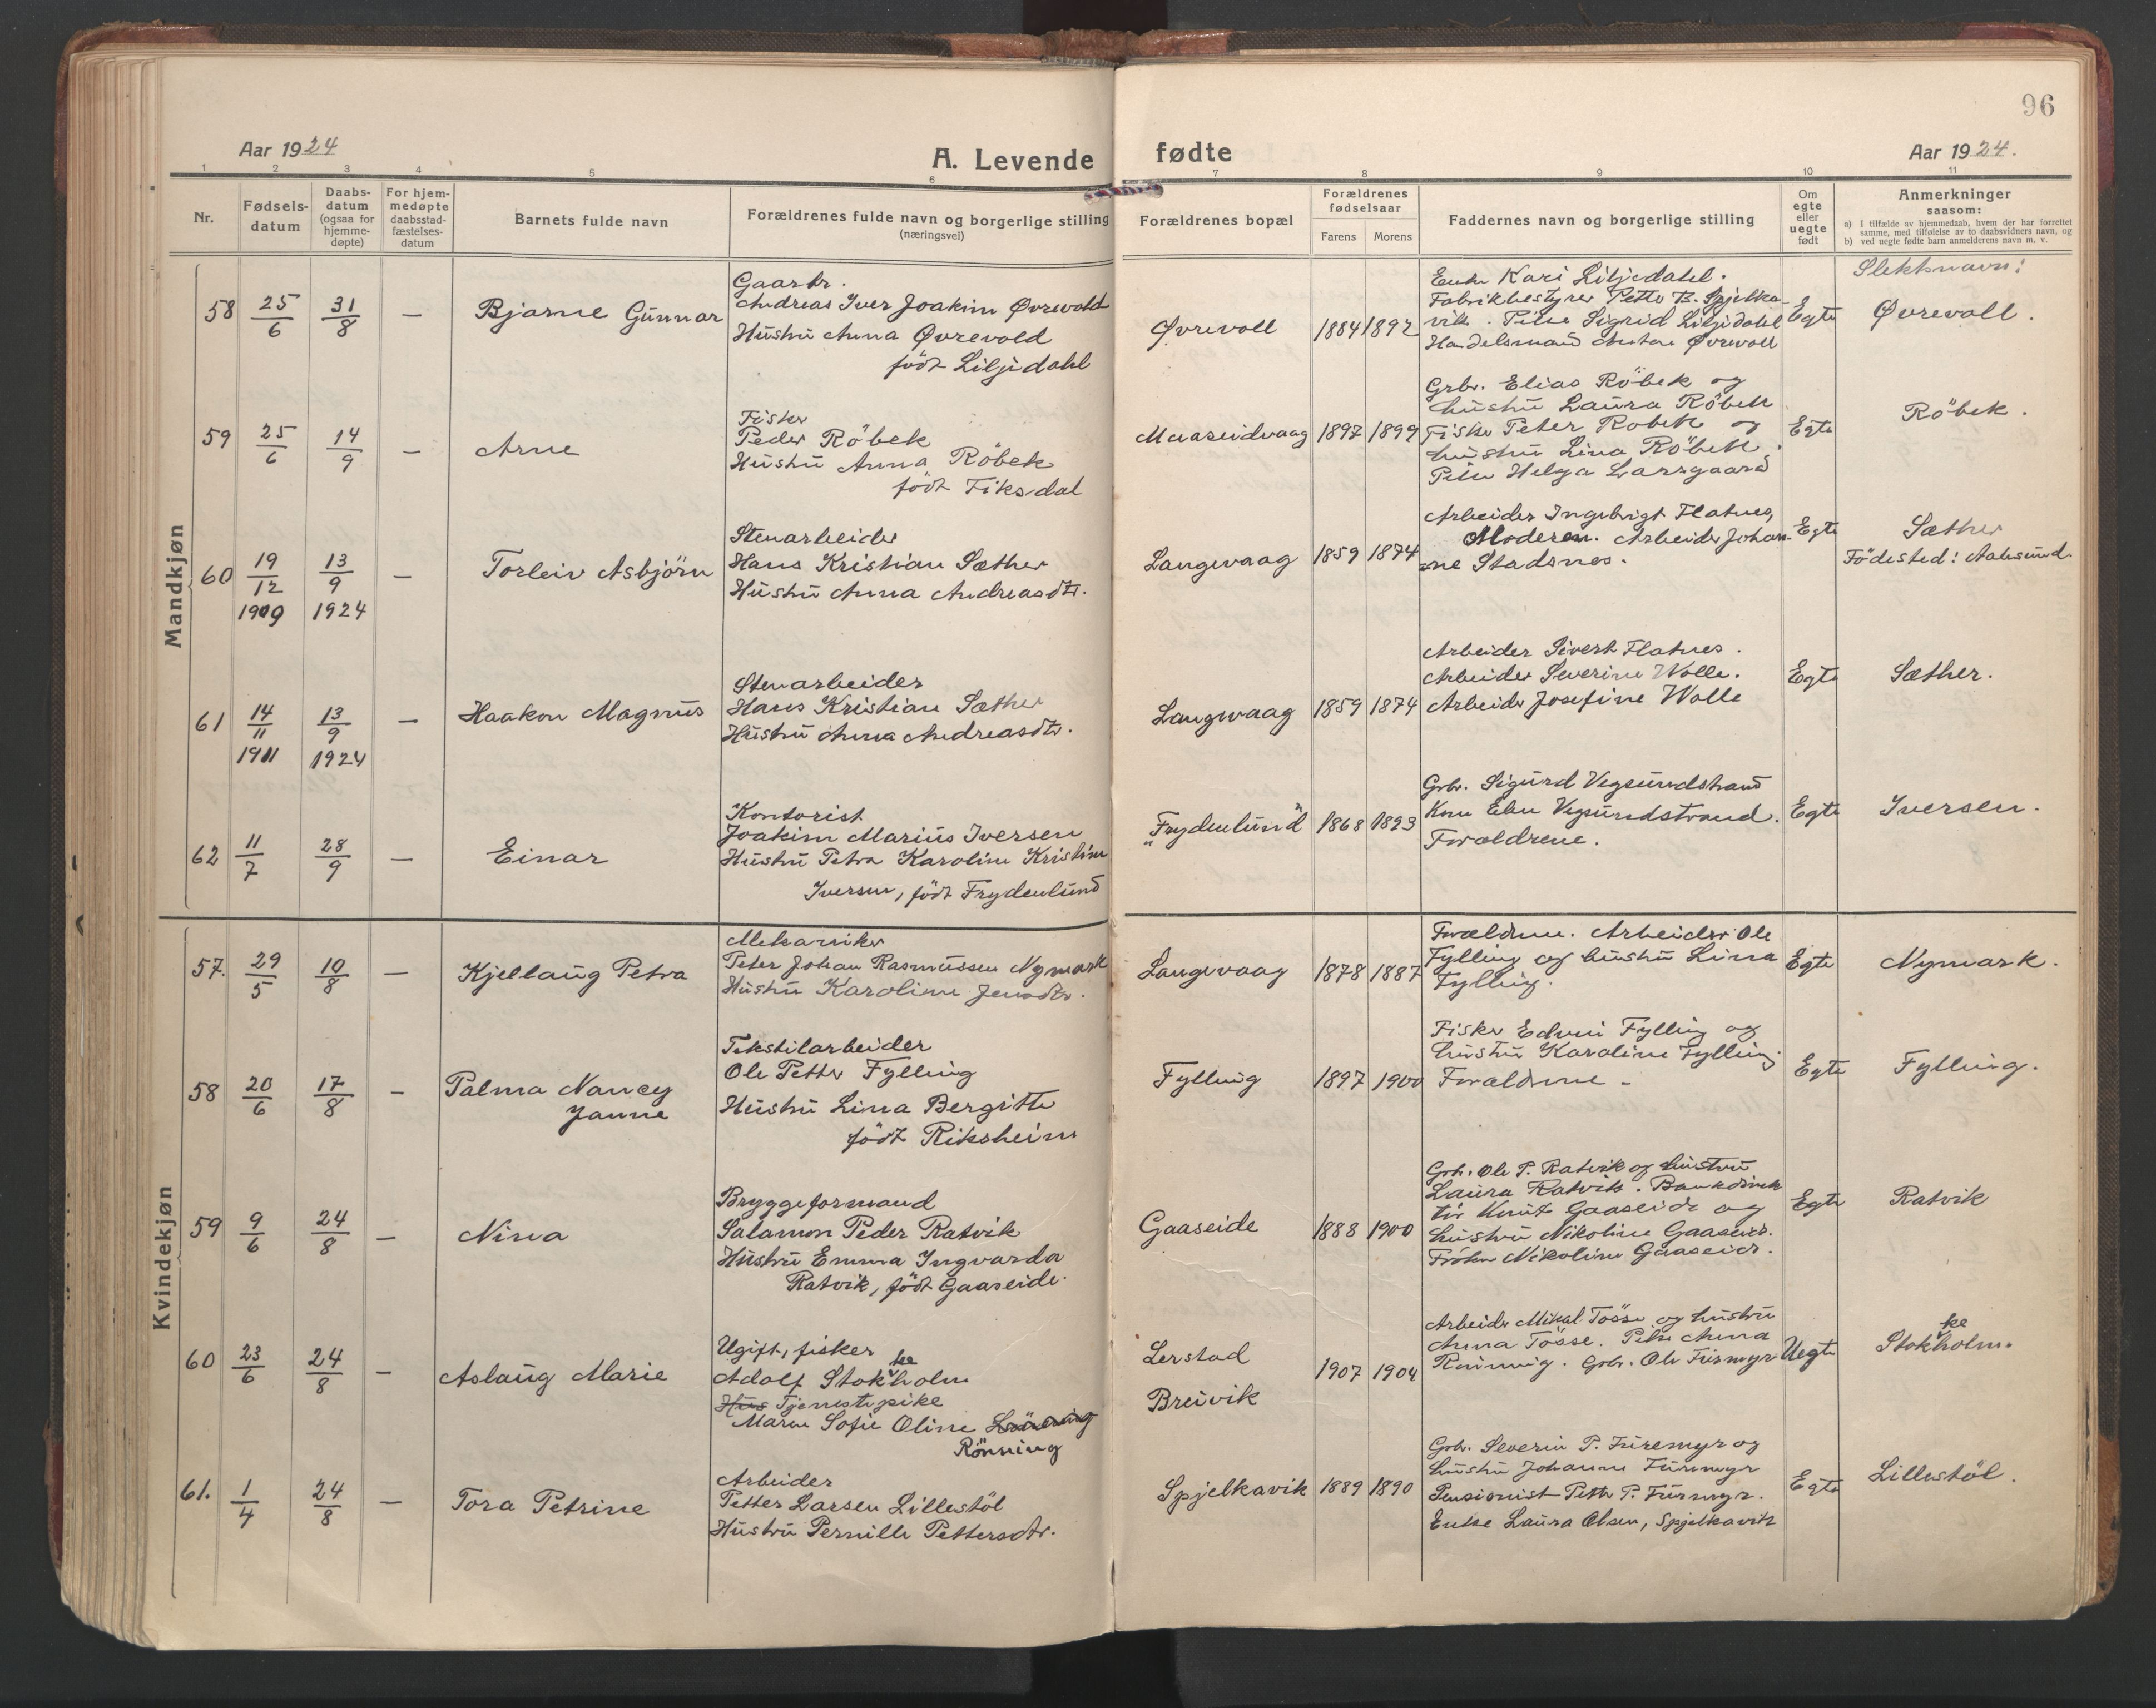 96
Aar 1924
A. Levende
fødte
Aar 1924.
1 2 3 4 5 6 7 8 9 10 11
Nr.
Fødsels-
datum
Daabs-
datum
(ogsaa for
hjemme-
døpte)
For hjem-
medøpte
daabsstad-
fæstelses-
datum
Barnets fulde navn
Forældrenes fulde navn og borgerlige stilling
(næringsvei)
Forældrenes bopæl
Forældrenes
fødselsaar
Farens Morens
Faddernes navn og borgerlige stilling
Om
egte
eller
uegte
født
Anmerkninger
saasom:
a) I tilfælde av hjemmedaab, hvem der har forrettet
samme, med tilføielse av to daabsvidners navn, og
b) ved uegte fødte barn anmelderens navn m. v.
Mandkjøn
58 25/6 31/8 — Bjarne Gunnar
Gaarbr.
Andreas Iver Joakim Øvrevold
Hustru Anna Øvrevold
født Liljedahl
Øvrevoll 1884 1892
Enke Kari Liljedahl.
Fabrikbestyrer Petter B. Spjelka-
vik. Pike Sigrid Liljedahl
Handelsmand Anton Øvrevoll
Egte
Slektsnavn:
Øvrevoll.
59 25/6 14/9 — Arne
Fisker
Peder Röbek
Hustru Anna Röbek
født Fiksdal
Maaseidvaag 1897 1899
Grbr. Elias Röbek og
hustru Laura Röbek
Fisker Peter Robek og
hustru Lina Röbek.
Pike Helga Larsgaard
Egte
Röbek.
60 19/12 1909 13/9 1924 — Torleiv Asbjörn
Stenarbeider
Hans Kristian Sæther
Hustru Anna Andreasdtr.
Langevaag 1859 1874
Arbeider Ingebrigt Flatnes,
Moderen. Arbeider Johan-
ne Stadsnes.
Egte
Sæther
Födested: Aalesund.
61 14/11 1911 13/9 1924 — Haakon Magnus
Stenarbeider
Hans Kristian Sæther
Hustru Anna Andreasdtr.
Langevaag 1859 1874
Arbeider Sivert Flatnes.
Arbeider Severine Wolle.
Arbeider Josefine Wolle
Egte
Sæther.
62 11/7 28/9 — Einar
Kontorist
Joakim Marius Iversen
Hustru Petra Karoline Kristine
Iversen, født Frydenlund
"Frydenlund" 1868 1893
Grbr. Sigurd Vegsundstrand
Kone Elen Vegsundstrand.
Forældrene.
Egte
Iversen.
Kvindekjøn
57. 29/5 10/8 — Kjellaug Petra
Mekaniker
Peter Johan Rasmussen Nymark
Hustru Karoline Jensdtr.
Langevaag 1878 1887
Forældrene. Arbeider Ole
Fylling og hustru Lina
Fylling.
Egte
Nymark.
58 20/6 17/8 — Palma Nancy
Janne
Tekstilarbeider
Ole Petter Fylling
Hustru Lina Bergitte
født Riksheim
Fylling 1897 1900
Fisker Edvin Fylling og
hustru Karoline Fylling.
Forældrene.
Egte
Fylling.
59 9/6 24/8 — Nina
Bryggeformand
Salamon Peder Ratvik
Hustru Emma Ingvarda
Ratvik, født Gaaseide.
Gaaseide 1888 1900
Grb. Ole P. Ratvik og hustru
Laura Ratvik. Bankdirek
tör Knut Gaaseide og
hustru Nikoline Gaaseide.
Fröken Nikoline Gaaseide.
Egte
Ratvik
60 23/6 24/8 — Aslaug Marie
Ugift, fisker
Adolf Stokkeholm
Hus Tjenestepike
Maren Sofie Oline
Rönning
Lerstad
Breivik
1907 1904
Arbeider Mikal Tösse og hustru
Anna Tösse. Pike Anna
Rönning. Grbr. Ole Furmyr
Uegte
Stokkeholm.
61. 1/4 24/8 — Tora Petrine
Arbeider
Petter Larsen Lillestöl
Hustru Pernille Pettersdtr.
Spjelkavik 1889 1890
Grb. Severin P. Furemyr og
hustru Johanne Furemyr
Pensionist Petter P. Furmyr.
Enke Laura Olsen, Spjelkavik
Egte
Lillestöl.